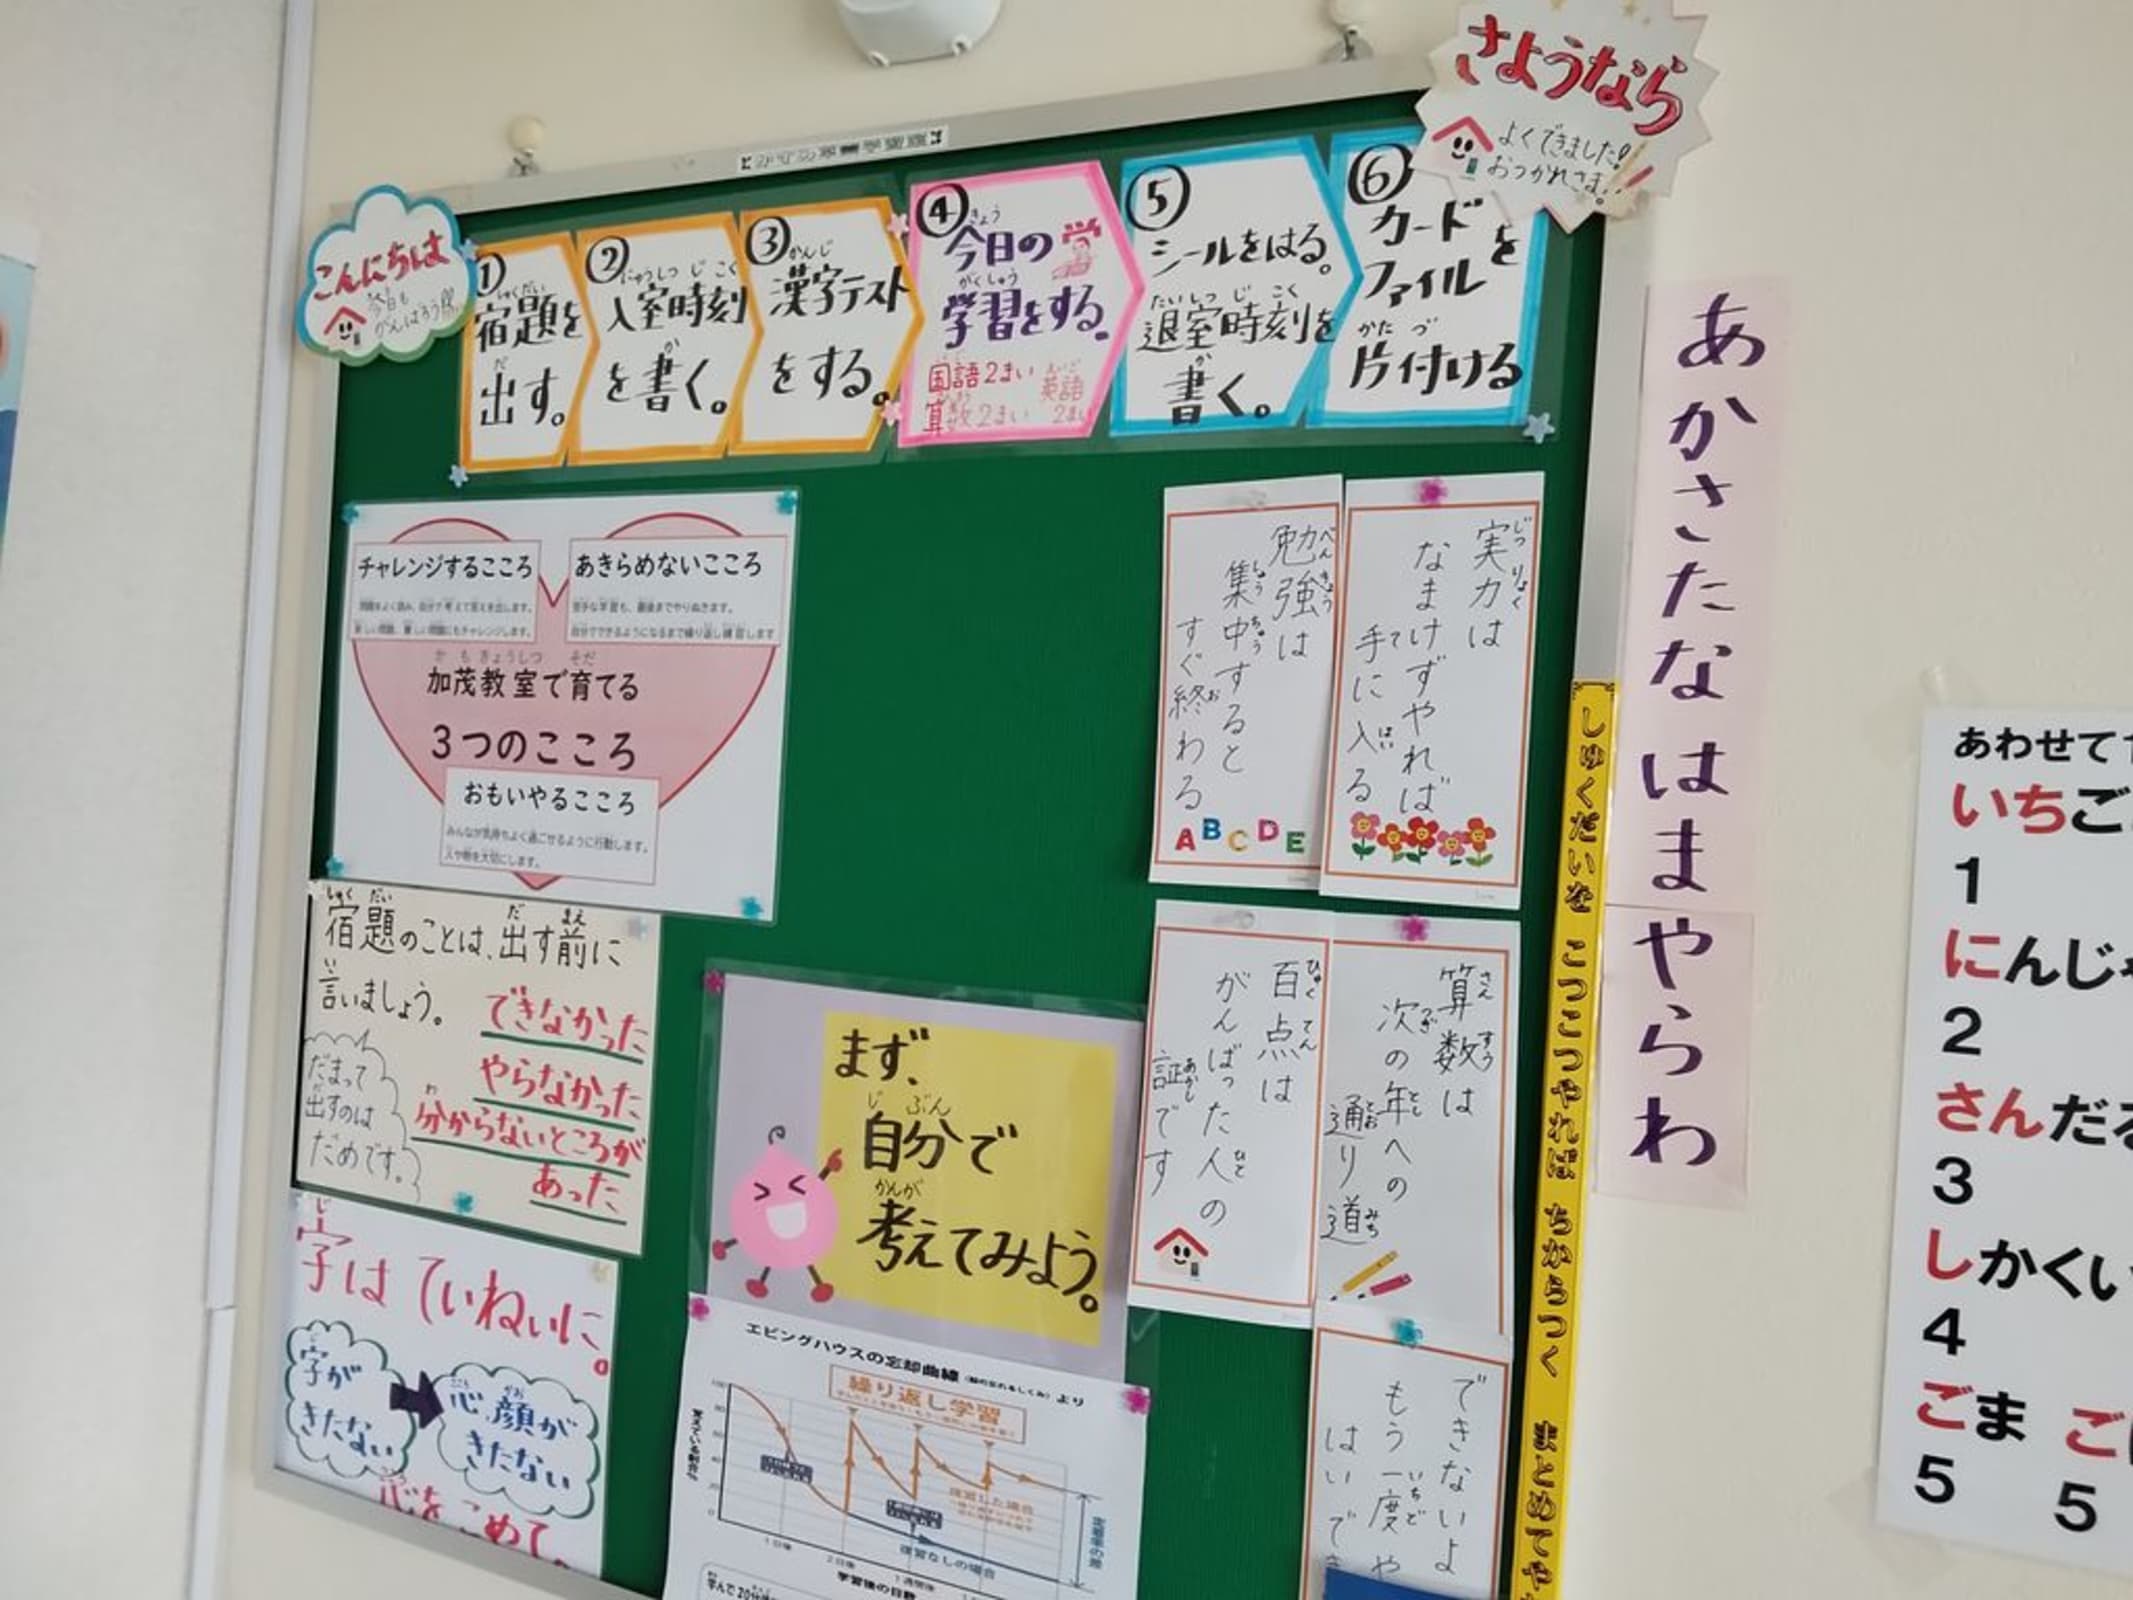 さようなら
よくできました!
おつかれさま!
こんにちは
今日も
がんばろう
①
宿題を
出す。
②
入室時刻
を書く。
③
漢字テスト
をする。
④
今日の
学習をする。
国語2まい 英語
算数2まい 2まい
⑤
シールをはる。
退室時刻を
書く。
⑥
カード
ファイルを
片付ける
チャレンジするこころ
あきらめないこころ
加茂教室で育てる
3つのこころ
おもいやるこころ
みんなが気持ちよく過ごせるように行動します。
人や物を大切にします。
実力は
なまけずやれば
手に入る
勉強は
集中すると
すぐ終わる
ABCDE
算数は
次の年への
通り道
百点は
がんばった人の
証です
できないよ
もう一度や
はいでき
宿題のことは、出す前に
言いましょう。
できなかった
やらなかった
分からないところが
あった
だまって
出すのは
だめです。
字はていねいに。
字が
きたない
心、顔が
きたない
心をこめて、
まず、
自分で
考えてみよう。
エビングハウスの忘却曲線
より
繰り返し学習
復習した場合
復習なしの場合
1日後
2日後
1週間後
学習後の日数
あかさたなはまやらわ
しゅくだいを こつこつやれば ちからつく まとめてや
あわせて
いちご
1
にんじ
2
さんだる
3
しかくい
4
ごま ご
5 5